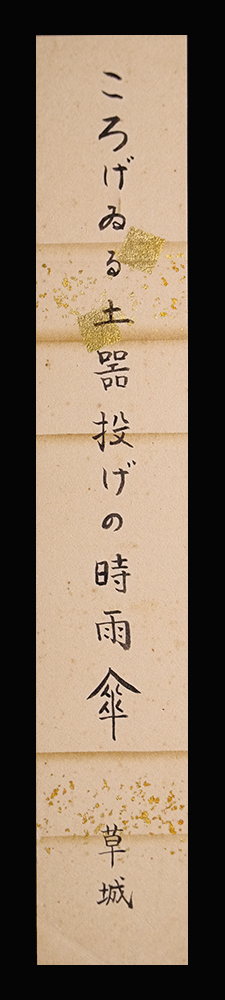 ころげゐる土器投げの時雨傘
草城